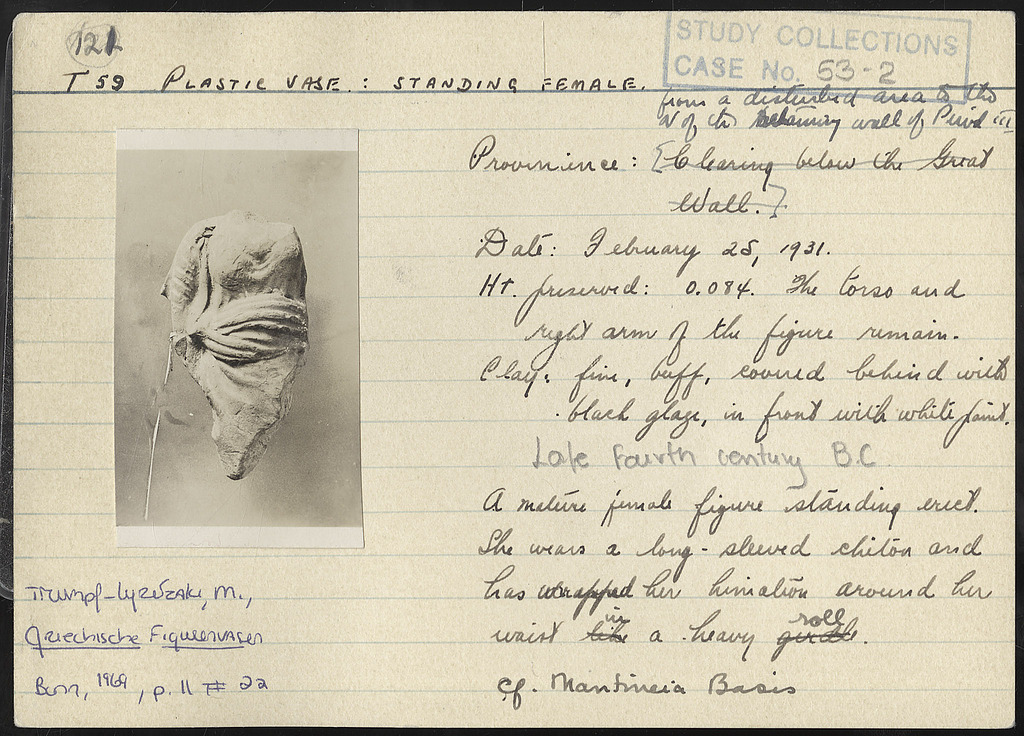 121
STUDY COLLECTIONS
CASE No. 53-2
T 59 PLASTIC VASE: STANDING FEMALE.
from a disturbed area to the
N of the retaining wall of Period III
Provinience: [Clearing below the Great
Wall.]
Date: February 25, 1931.
Ht. preserved: 0.084. The torso and
right arm of the figure remain.
Clay: fine, buff, covered behind with
black glaze, in front with white paint.
Late Fourth century B.C
A mature female figure standing erect.
She wears a long-sleeved chiton and
has wrapped her himation around her
in roll
waist like a heavy girdle.
cf. Mantineia Basis
Trumpf-Lyritzaki, M.,
Griechische Figurenvasen
Bonn, 1969, p. 11 # 22